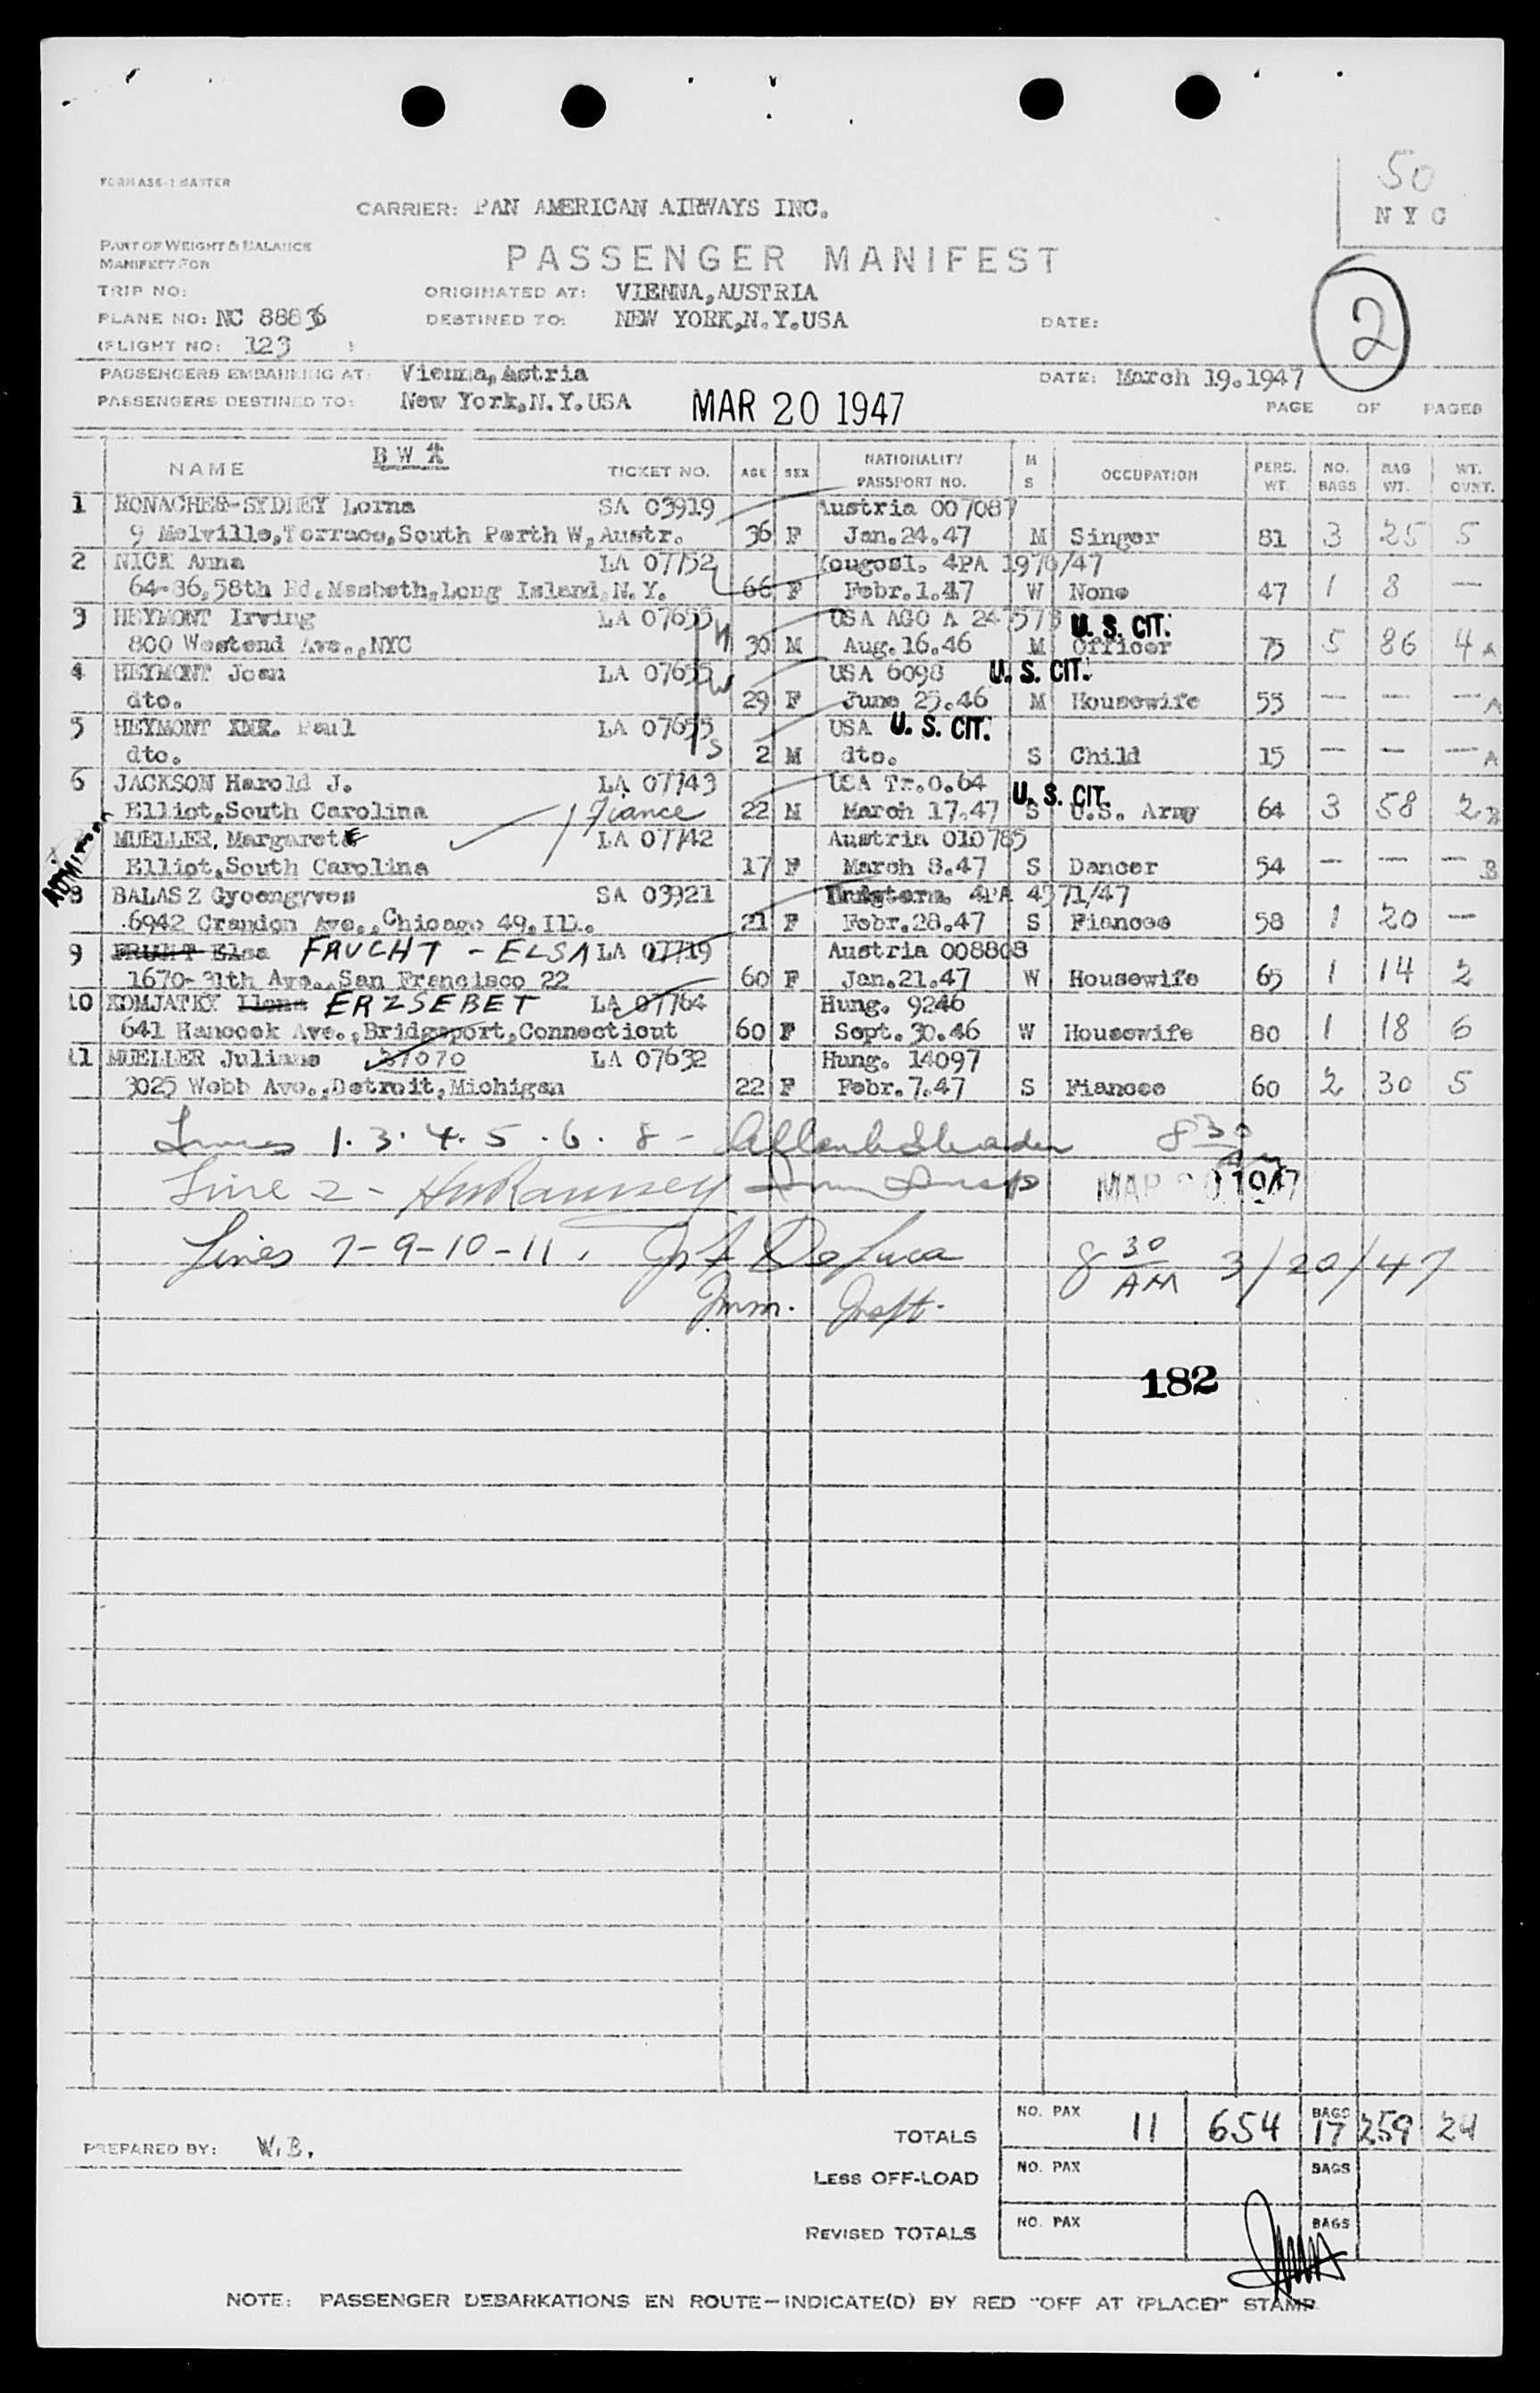 FORM ASS-1 MASTER
50
NYC
CARRIER: PAN AMERICAN AIRWAYS INC.
PART OF WEIGHT & BALANCE
MANIFEST FOR
PASSENGER MANIFEST
2
TRIP NO:
ORIGINATED AT: VIENNA,AUSTRIA
PLANE NO: NC 88836
DESTINED TO: NEW YORK,N.Y.USA
DATE:
(FLIGHT NO: 123 )
PASSENGERS EMBARKING AT: Vienna,Astria
DATE: March 19.1947
PASSENGERS DESTINED TO: New York,N.Y.USA
MAR 20 1947
PAGE OF PAGES
NAME TICKET NO. AGE SEX NATIONALITY PASSPORT NO. M S OCCUPATION PERS. WT. NO. BAGS BAG WT. WT. OVNT.
1 RONACHER-SYDNEY Lorna SA 03919 Austria 007087
9 Melville,Terrace,South Perth W,Austr. 36 F Jan.24.47 M Singer 81 3 25 5
2 NICK Anna LA 07752 Yougosl. 4PA 1976/47
64-36,58th Rd.Masbeth,Long Island,N.Y. 66 F Febr.1.47 W None 47 1 8 —
3 HEYMONT Irving LA 07655 H USA AGO A 247573 U. S. CIT.
800 Westend Ave.,NYC 30 M Aug.16.46 M Officer 75 5 86 4 A
4 HEYMONT Joan LA 07655 W USA 6098 U. S. CIT.
dto. 29 F June 25.46 M Housewife 55 — — — A
5 HEYMONT Paul LA 07655 S USA U. S. CIT.
dto. 2 M dto. S Child 15 — — — A
6 JACKSON Harold J. LA 07743 USA Tr.O.64 U. S. CIT.
Elliot,South Carolina Fiance 22 M March 17.47 S U.S. Army 64 3 58 2 B
ADMITTED
MUELLER, Margarete LA 07742 Austria 010785
Elliot,South Carolina 17 F March 8.47 S Dancer 54 — — — B
8 BALASZ Gyoengyves SA 03921 4PA 4371/47
6942 Crandon Ave.,Chicago 49,Ill. 21 F Febr.28.47 S Fiancee 58 1 20 —
9 Elsa FRUCHT - ELSA LA 07719 Austria 008803
1670-31th Ave.,San Francisco 22 60 F Jan.21.47 W Housewife 65 1 14 2
10 KOMJATKY Ilona ERZSEBET LA 07764 Hung. 9246
641 Hancock Ave.,Bridgeport,Connecticut 60 F Sept.30.46 W Housewife 80 1 18 6
11 MUELLER Juliane 27070 LA 07632 Hung. 14097
3025 Webb Ave.,Detroit,Michigan 22 F Febr.7.47 S Fiancee 60 2 30 5
Lines 1. 3. 4. 5. 6. 8 - 8 30
Line 2 - HW Ramsey Imm Insp MAR 20 1947
Lines 7-9-10-11. DeLuca 8 30 AM 3/20/47
Imm. Inspt.
182
TOTALS NO. PAX 11 654 BAGS 17 259 24
PREPARED BY: W.B.
LESS OFF-LOAD NO. PAX BAGS
REVISED TOTALS NO. PAX BAGS
NOTE: PASSENGER DEBARKATIONS EN ROUTE—INDICATE(D) BY RED "OFF AT (PLACE)" STAMP